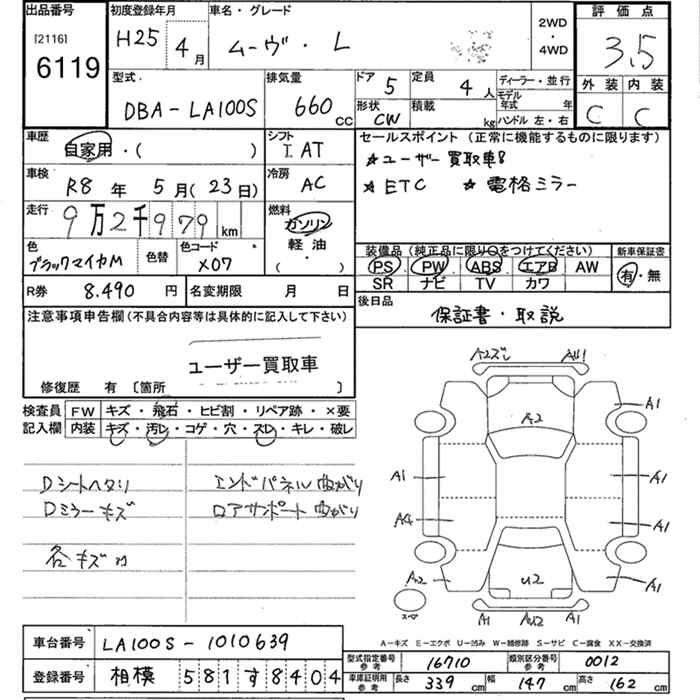 出品番号
[2116]
6119
初度登録年月
H25 4月
車名・グレード
ムーヴ・L
2WD
・
4WD
評価点
3.5
外装 内装
C C
型式
DBA-LA100S
排気量
660 CC
ドア 5
定員 4人
形状 CW
積載 kg
ディーラー・並行
モデル年式 年
ハンドル 左・右
車歴
自家用・( )
シフト
I AT
車検
R8年 5月(23日)
冷房
AC
走行
9万2千979km
燃料
ガソリン
軽油
( )
色
ブラックマイカM
色替
色コード
X07
R券 8.490円
名変期限 月 日
セールスポイント (正常に機能するものに限ります)
★ユーザー買取車!
★ETC ★電格ミラー
装備品(純正品に限り○をつけてください)
PS PW ABS エアB AW
SR ナビ TV カワ
新車保証書
有・無
後日品
保証書・取説
注意事項申告欄(不具合内容等は具体的に記入して下さい)
ユーザー買取車
修復歴 有〔箇所 〕
検査員記入欄
FW キズ・飛石・ヒビ割・リペア跡・×要
内装 キズ・汚レ・コゲ・穴・スレ・キレ・破レ
Dシートヘタリ
Dミラーキズ
各キズ凹
エンドパネル曲がり
ロアサポート曲がり
A2ズレ AU1
A1
A2
A1 A1
A4 A1
A2 U2 A1
スペア
A1 AU2 A1
A-キズ E-エクボ U-凹み W-補修跡 S-サビ C-腐食 XX-交換済
車台番号 LA100S-1010639
登録番号 相模 581す8404
型式指定番号 参考 16710
類別区分番号 参考 0012
車庫証明用 参考 長さ 339cm 幅 147cm 高さ 162cm